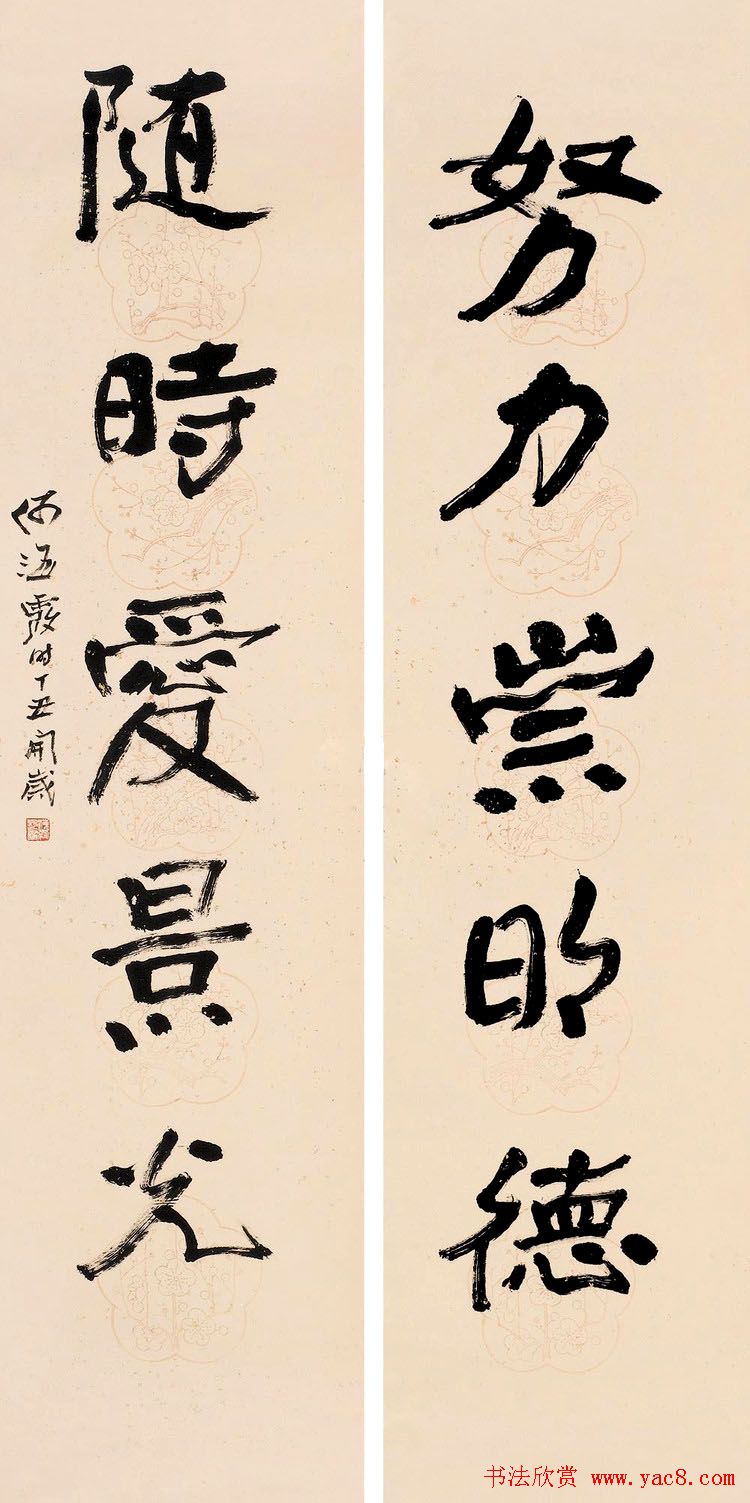 努力崇明德
随時愛景光
何海霞时丁丑開歲
书法欣赏 www.yac8.com